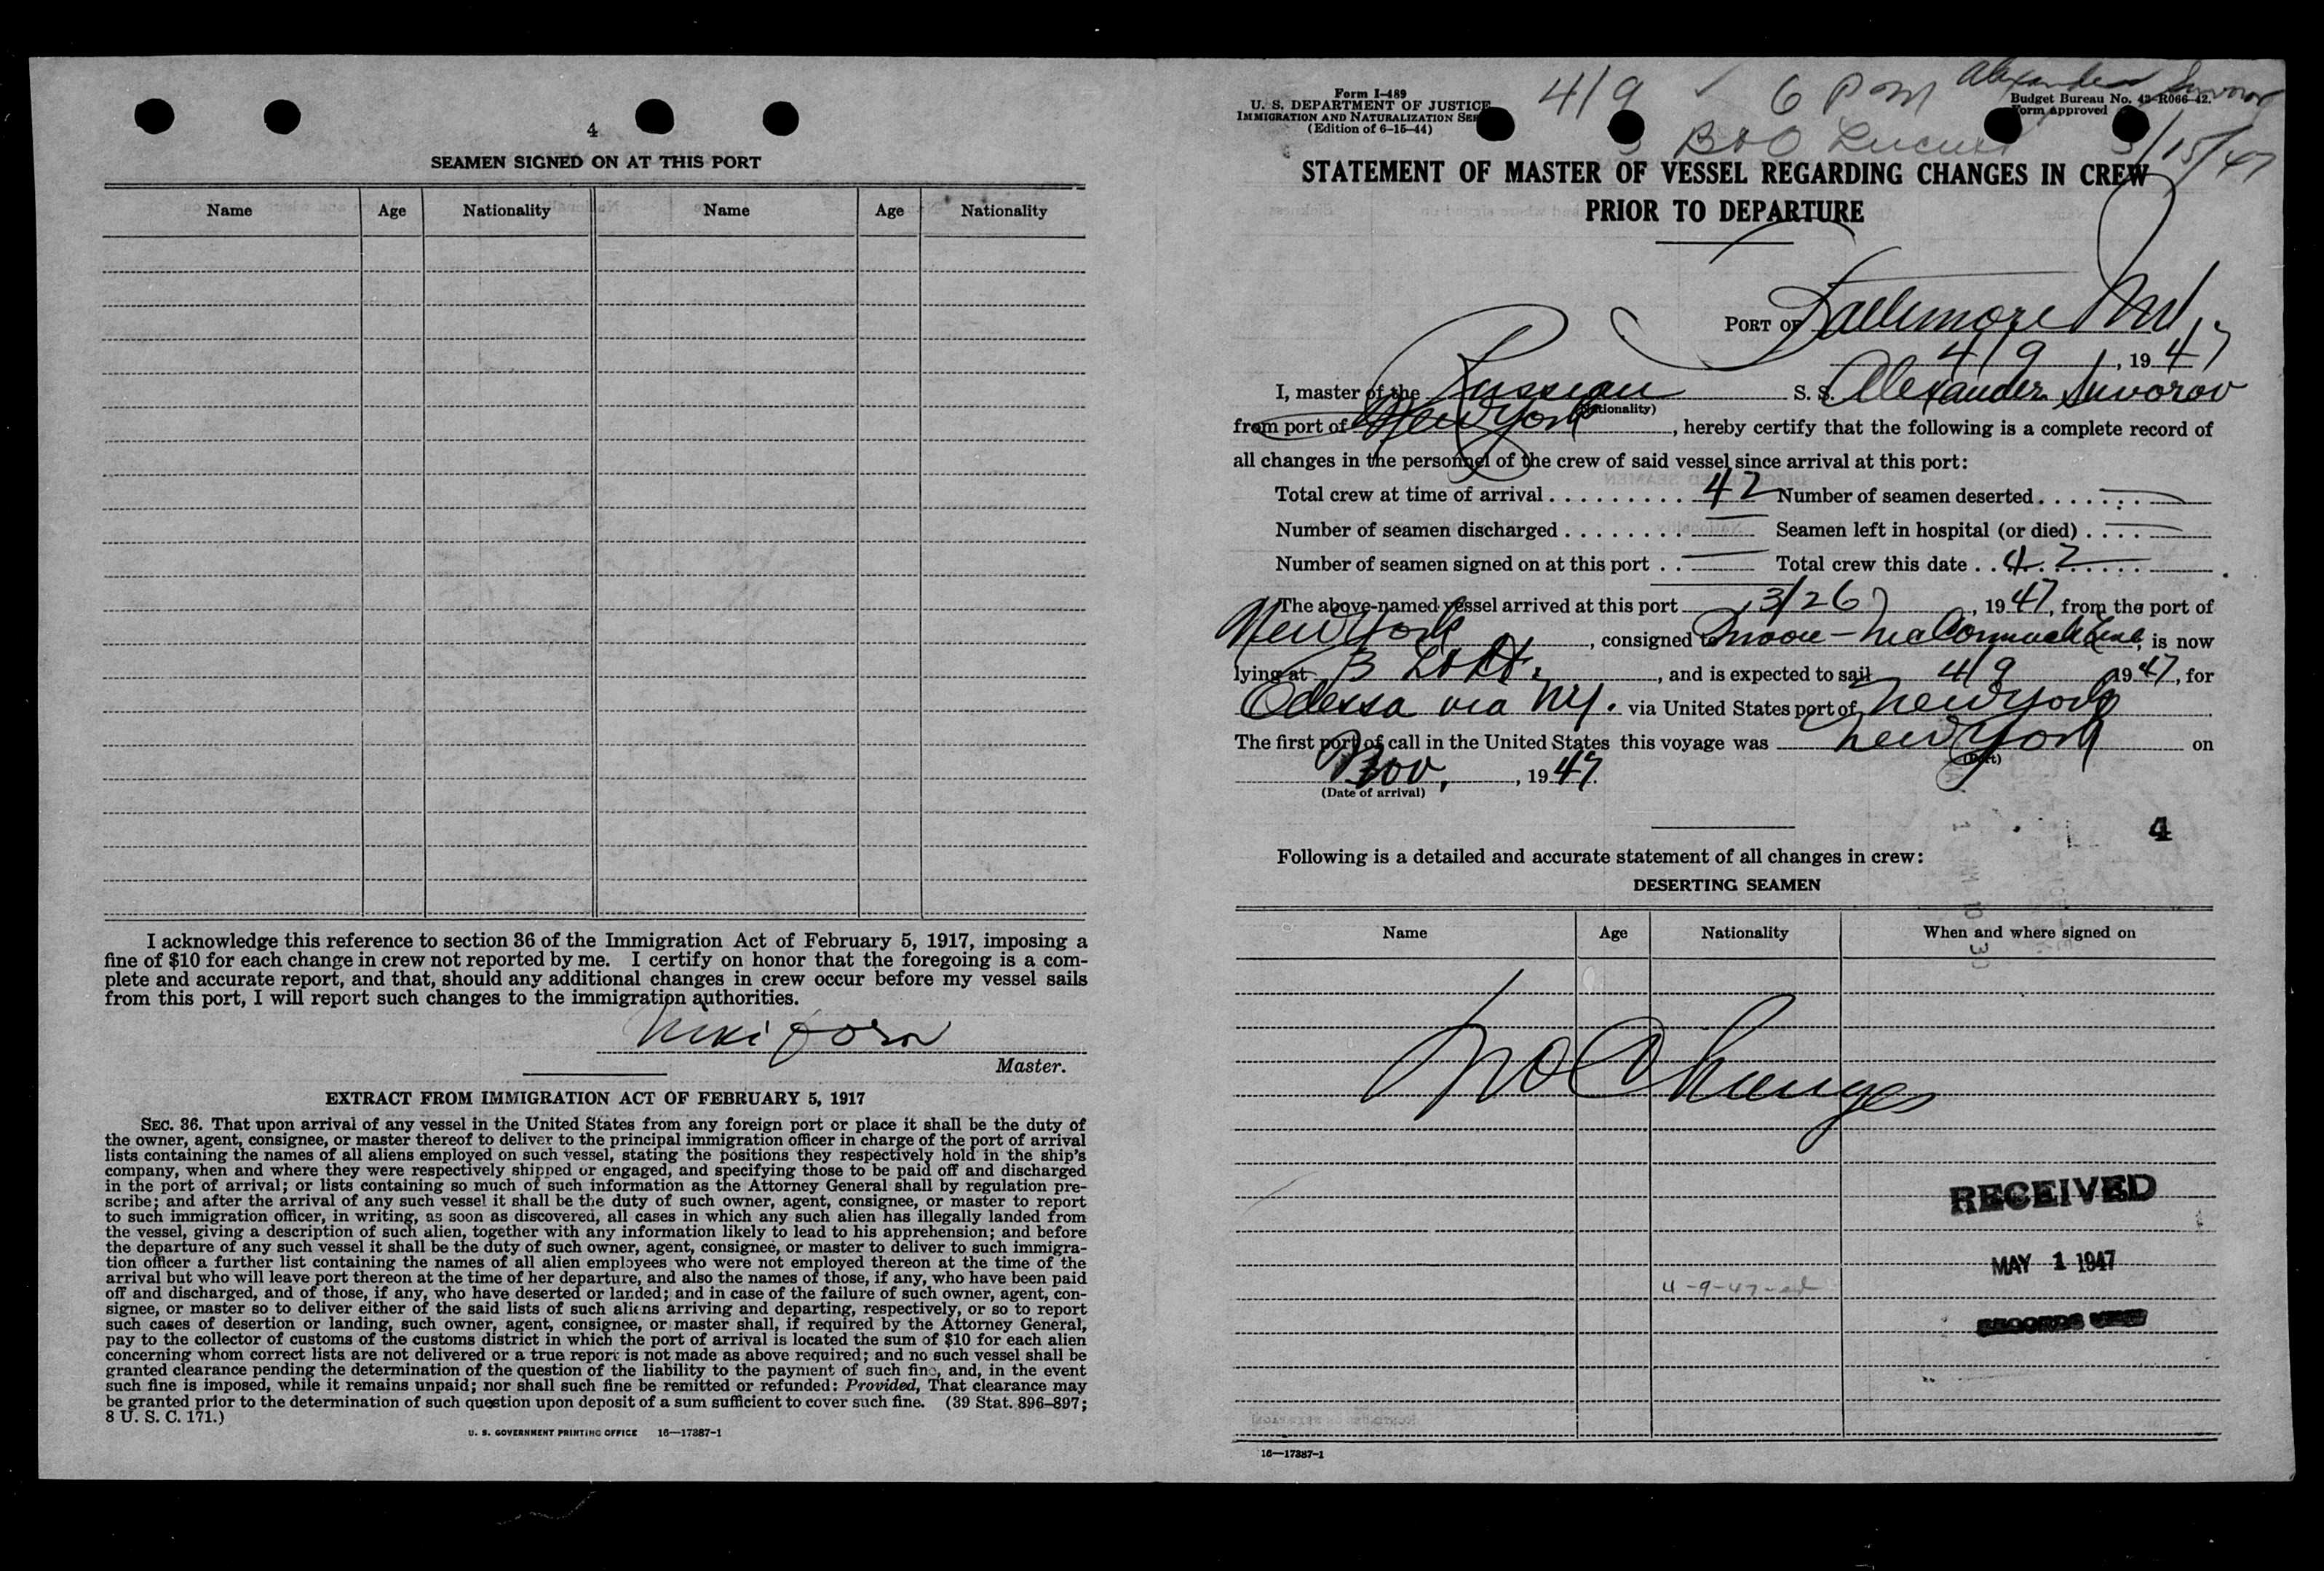 4
SEAMEN SIGNED ON AT THIS PORT
Name Age Nationality Name Age Nationality
I acknowledge this reference to section 36 of the Immigration Act of February 5, 1917, imposing a
fine of $10 for each change in crew not reported by me. I certify on honor that the foregoing is a com-
plete and accurate report, and that, should any additional changes in crew occur before my vessel sails
from this port, I will report such changes to the immigration authorities.
Master.
EXTRACT FROM IMMIGRATION ACT OF FEBRUARY 5, 1917
SEC. 36. That upon arrival of any vessel in the United States from any foreign port or place it shall be the duty of
the owner, agent, consignee, or master thereof to deliver to the principal immigration officer in charge of the port of arrival
lists containing the names of all aliens employed on such vessel, stating the positions they respectively hold in the ship's
company, when and where they were respectively shipped or engaged, and specifying those to be paid off and discharged
in the port of arrival; or lists containing so much of such information as the Attorney General shall by regulation pre-
scribe; and after the arrival of any such vessel it shall be the duty of such owner, agent, consignee, or master to report
to such immigration officer, in writing, as soon as discovered, all cases in which any such alien has illegally landed from
the vessel, giving a description of such alien, together with any information likely to lead to his apprehension; and before
the departure of any such vessel it shall be the duty of such owner, agent, consignee, or master to deliver to such immigra-
tion officer a further list containing the names of all alien employees who were not employed thereon at the time of the
arrival but who will leave port thereon at the time of her departure, and also the names of those, if any, who have been paid
off and discharged, and of those, if any, who have deserted or landed; and in case of the failure of such owner, agent, con-
signee, or master so to deliver either of the said lists of such aliens arriving and departing, respectively, or so to report
such cases of desertion or landing, such owner, agent, consignee, or master shall, if required by the Attorney General,
pay to the collector of customs of the customs district in which the port of arrival is located the sum of $10 for each alien
concerning whom correct lists are not delivered or a true report is not made as above required; and no such vessel shall be
granted clearance pending the determination of the question of the liability to the payment of such fine, and, in the event
such fine is imposed, while it remains unpaid; nor shall such fine be remitted or refunded: Provided, That clearance may
be granted prior to the determination of such question upon deposit of a sum sufficient to cover such fine. (39 Stat. 896–897;
8 U. S. C. 171.)
U. S. GOVERNMENT PRINTING OFFICE 16—17387-1
Form I-489
U. S. DEPARTMENT OF JUSTICE
IMMIGRATION AND NATURALIZATION
(Edition of 6-15-44)
4/9 6 PM Alexander Suvorov
Budget Bureau No. 43-R066-42.
Form approved
B&O 3/15/47
STATEMENT OF MASTER OF VESSEL REGARDING CHANGES IN CREW
PRIOR TO DEPARTURE
PORT OF Baltimore Md
4/9, 1947
I, master of the Russian S. S. Alexander Suvorov
(Nationality)
from port of New York, hereby certify that the following is a complete record of
all changes in the personnel of the crew of said vessel since arrival at this port:
Total crew at time of arrival 42 Number of seamen deserted —
Number of seamen discharged — Seamen left in hospital (or died) —
Number of seamen signed on at this port — Total crew this date 42
The above-named vessel arrived at this port 3/26, 1947, from the port of
New York, consigned to Moore-McCormack Line, is now
lying at B, and is expected to sail 4/9 1947, for
Odessa via NY. via United States port of New York
The first port of call in the United States this voyage was New York on
(Port)
Nov, 1947.
(Date of arrival)
4
Following is a detailed and accurate statement of all changes in crew:
DESERTING SEAMEN
Name Age Nationality When and where signed on
No Changes
RECEIVED
MAY 1 1947
4-9-47
RECORDS
16—17387-1